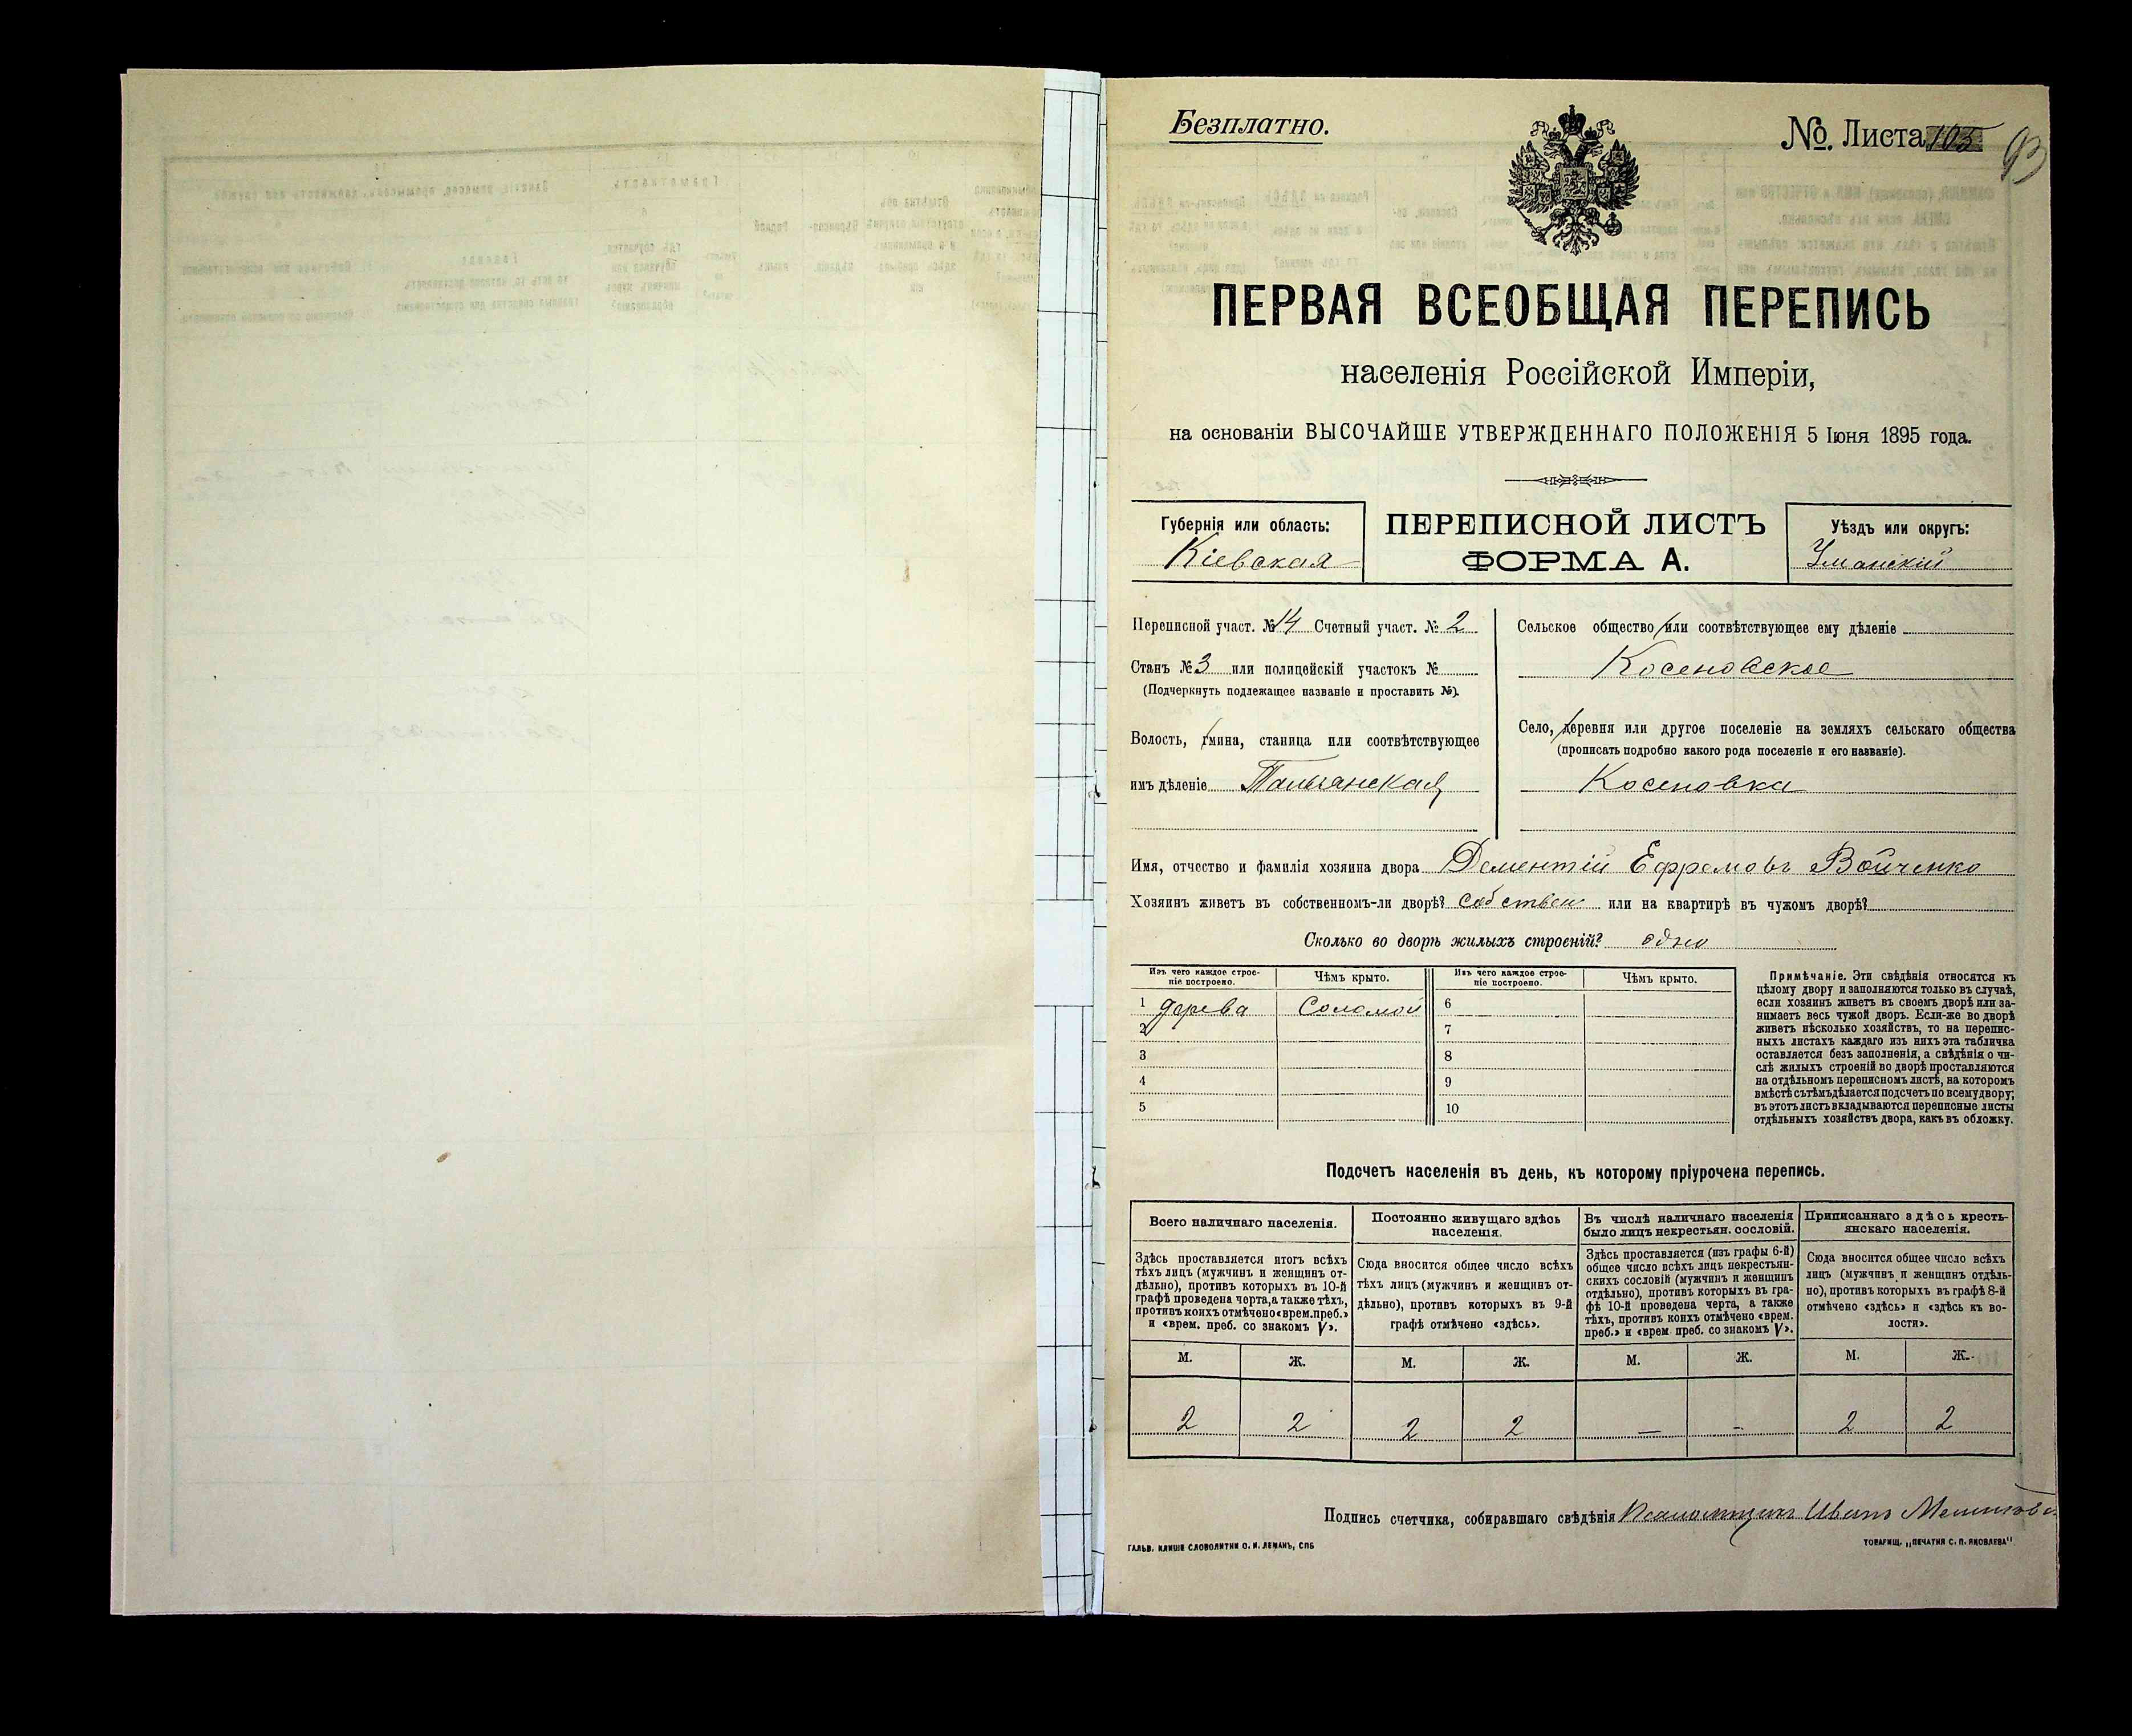 Безплатно.
№. Листа 105
93
ПЕРВАЯ ВСЕОБЩАЯ ПЕРЕПИСЬ
населенія Россійской Имперіи,
на основаніи ВЫСОЧАЙШЕ УТВЕРЖДЕННАГО ПОЛОЖЕНІЯ 5 Іюня 1895 года.
Губернія или область:
Кіевская
ПЕРЕПИСНОЙ ЛИСТЪ
ФОРМА А.
Уѣздъ или округъ:
Уманскій
Переписной участ. № 14 Счетный участ. № 2
Станъ № 3 или полицейскій участокъ №
(Подчеркнуть подлежащее названіе и проставить №).
Волость, гмина, станица или соотвѣтствующее
имъ дѣленіе Тальянская
Сельское общество или соотвѣтствующее ему дѣленіе
Косеновское
Село, деревня или другое поселеніе на земляхъ сельскаго общества
(прописать подробно какого рода поселеніе и его названіе).
Косеновка
Имя, отчество и фамилія хозяина двора Дементій Ефремовъ Войченко
Хозяинъ живетъ въ собственномъ-ли дворѣ? Собствен или на квартирѣ въ чужомъ дворѣ?
Сколько во дворѣ жилыхъ строеній? одно
Изъ чего каждое строе-
ніе построено.
Чѣмъ крыто.
Изъ чего каждое строе-
ніе построено.
Чѣмъ крыто.
1 дерева Соломой 6
2 7
3 8
4 9
5 10
Примѣчаніе. Эти свѣдѣнія относятся къ
цѣлому двору и заполняются только въ случаѣ,
если хозяинъ живетъ въ своемъ дворѣ или за-
нимаетъ весь чужой дворъ. Если-же во дворѣ
живетъ нѣсколько хозяйствъ, то на перепис-
ныхъ листахъ каждаго изъ нихъ эта табличка
оставляется безъ заполненія, а свѣдѣнія о чи-
слѣ жилыхъ строеній во дворѣ проставляются
на отдѣльномъ переписномъ листѣ, на которомъ
вмѣстѣ съ тѣмъ дѣлается подсчетъ по всему двору;
въ этотъ листъ вкладываются переписные листы
отдѣльныхъ хозяйствъ двора, какъ въ обложку.
Подсчетъ населенія въ день, къ которому пріурочена перепись.
Всего наличнаго населенія.
Здѣсь проставляется итогъ всѣхъ
тѣхъ лицъ (мужчинъ и женщинъ от-
дѣльно), противъ которыхъ въ 10-й
графѣ проведена черта, а также тѣхъ,
противъ коихъ отмѣчено «врем. преб.»
и «врем. преб. со знакомъ V».
Постоянно живущаго здѣсь
населенія.
Сюда вносится общее число всѣхъ
тѣхъ лицъ (мужчинъ и женщинъ от-
дѣльно), противъ которыхъ въ 9-й
графѣ отмѣчено «здѣсь».
Въ числѣ наличнаго населенія
было лицъ некрестьян. сословій.
Здѣсь проставляется (изъ графы 6-й)
общее число всѣхъ лицъ некрестьян-
скихъ сословій (мужчинъ и женщинъ
отдѣльно), противъ которыхъ въ гра-
фѣ 10-й проведена черта, а также
тѣхъ, противъ коихъ отмѣчено «врем.
преб.» и «врем преб. со знакомъ V».
Приписаннаго здѣсь кресть-
янскаго населенія.
Сюда вносится общее число всѣхъ
лицъ (мужчинъ и женщинъ отдѣль-
но), противъ которыхъ въ графѣ 8-й
отмѣчено «здѣсь» и «здѣсь къ во-
лости».
М. Ж. М. Ж. М. Ж. М. Ж.
2 2 2 2 — - 2 2
Подпись счетчика, собиравшаго свѣдѣнія Псаломщикъ Иванъ
ГАЛЬВ. КЛИШЕ СЛОВОЛИТНИ О. И. ЛЕМАНЪ, СПБ
ТОВАРИЩ. „ПЕЧАТНЯ С. П. ЯКОВЛЕВА"